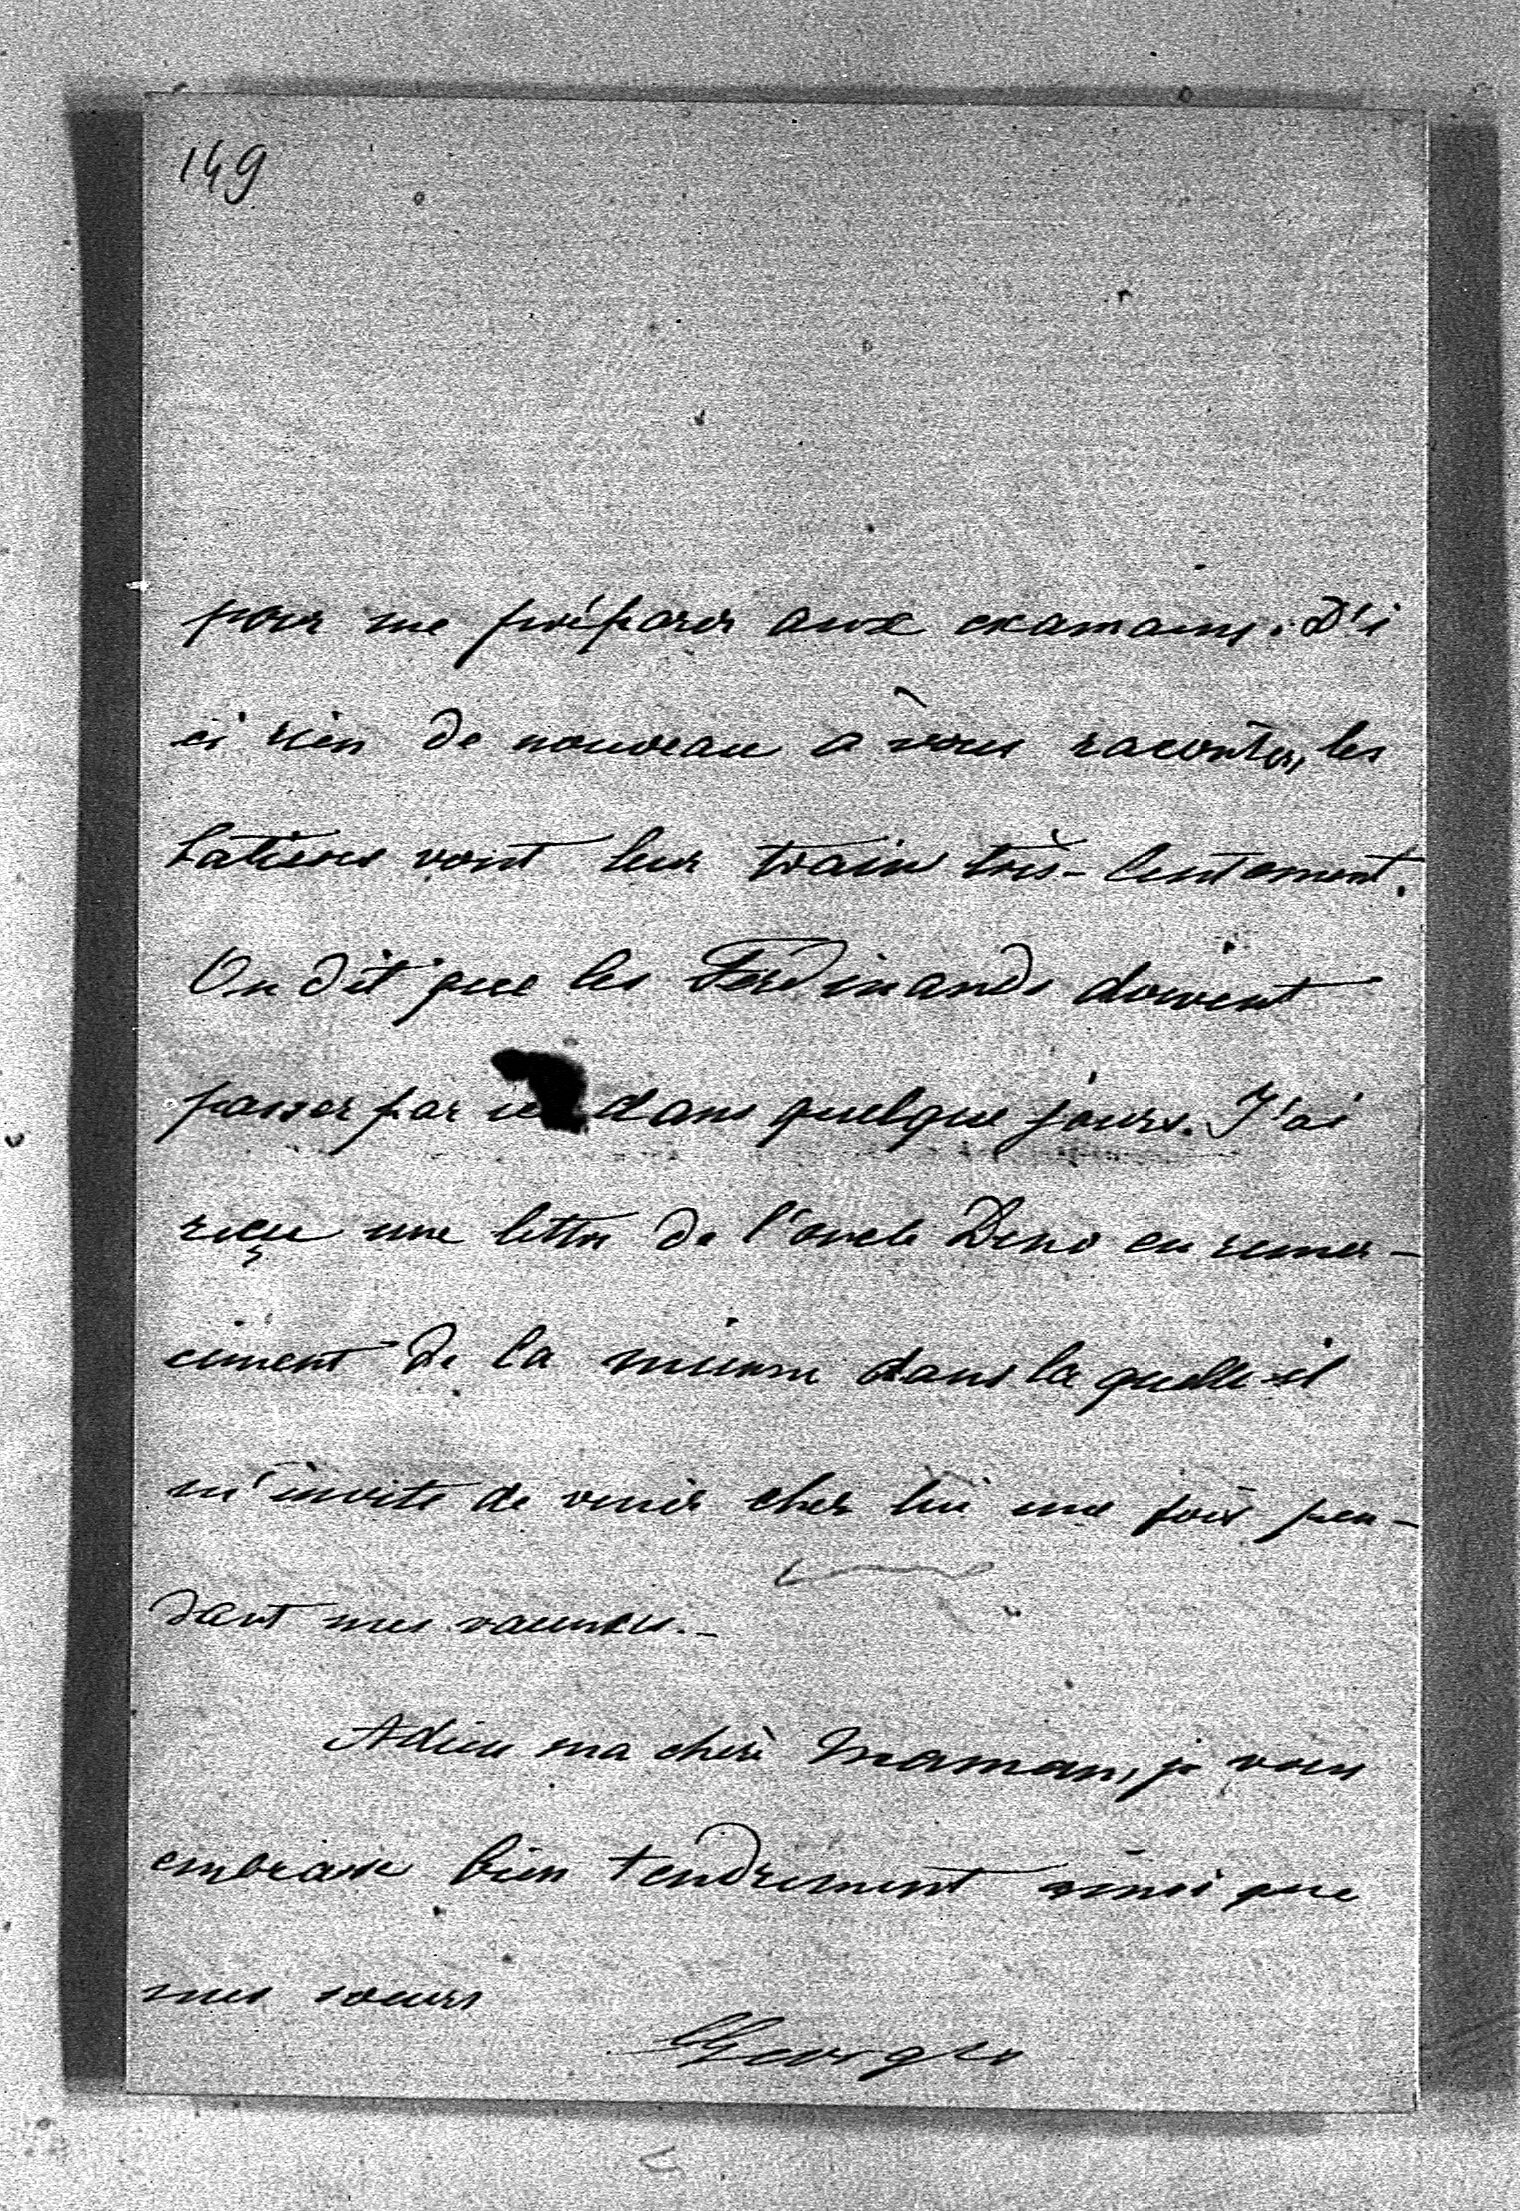 149
pour me préparer aux examains. D'i
ci rien de nouveau à vous raconter, les
batisses vont leur train très-lentement.
On dit que les Ferdinands doivent
passer par ici dans quelque jours. J'ai
reçu une lettre de l'oncle Dino en remer-
ciment de la mienne dans la quelle il
m'invite de venir chez lui une fois pen-
dant mes vacances.-
Adieu ma chère Maman, je vous
embrasse bien tendrement ainsi que
mes soeurs
Georges